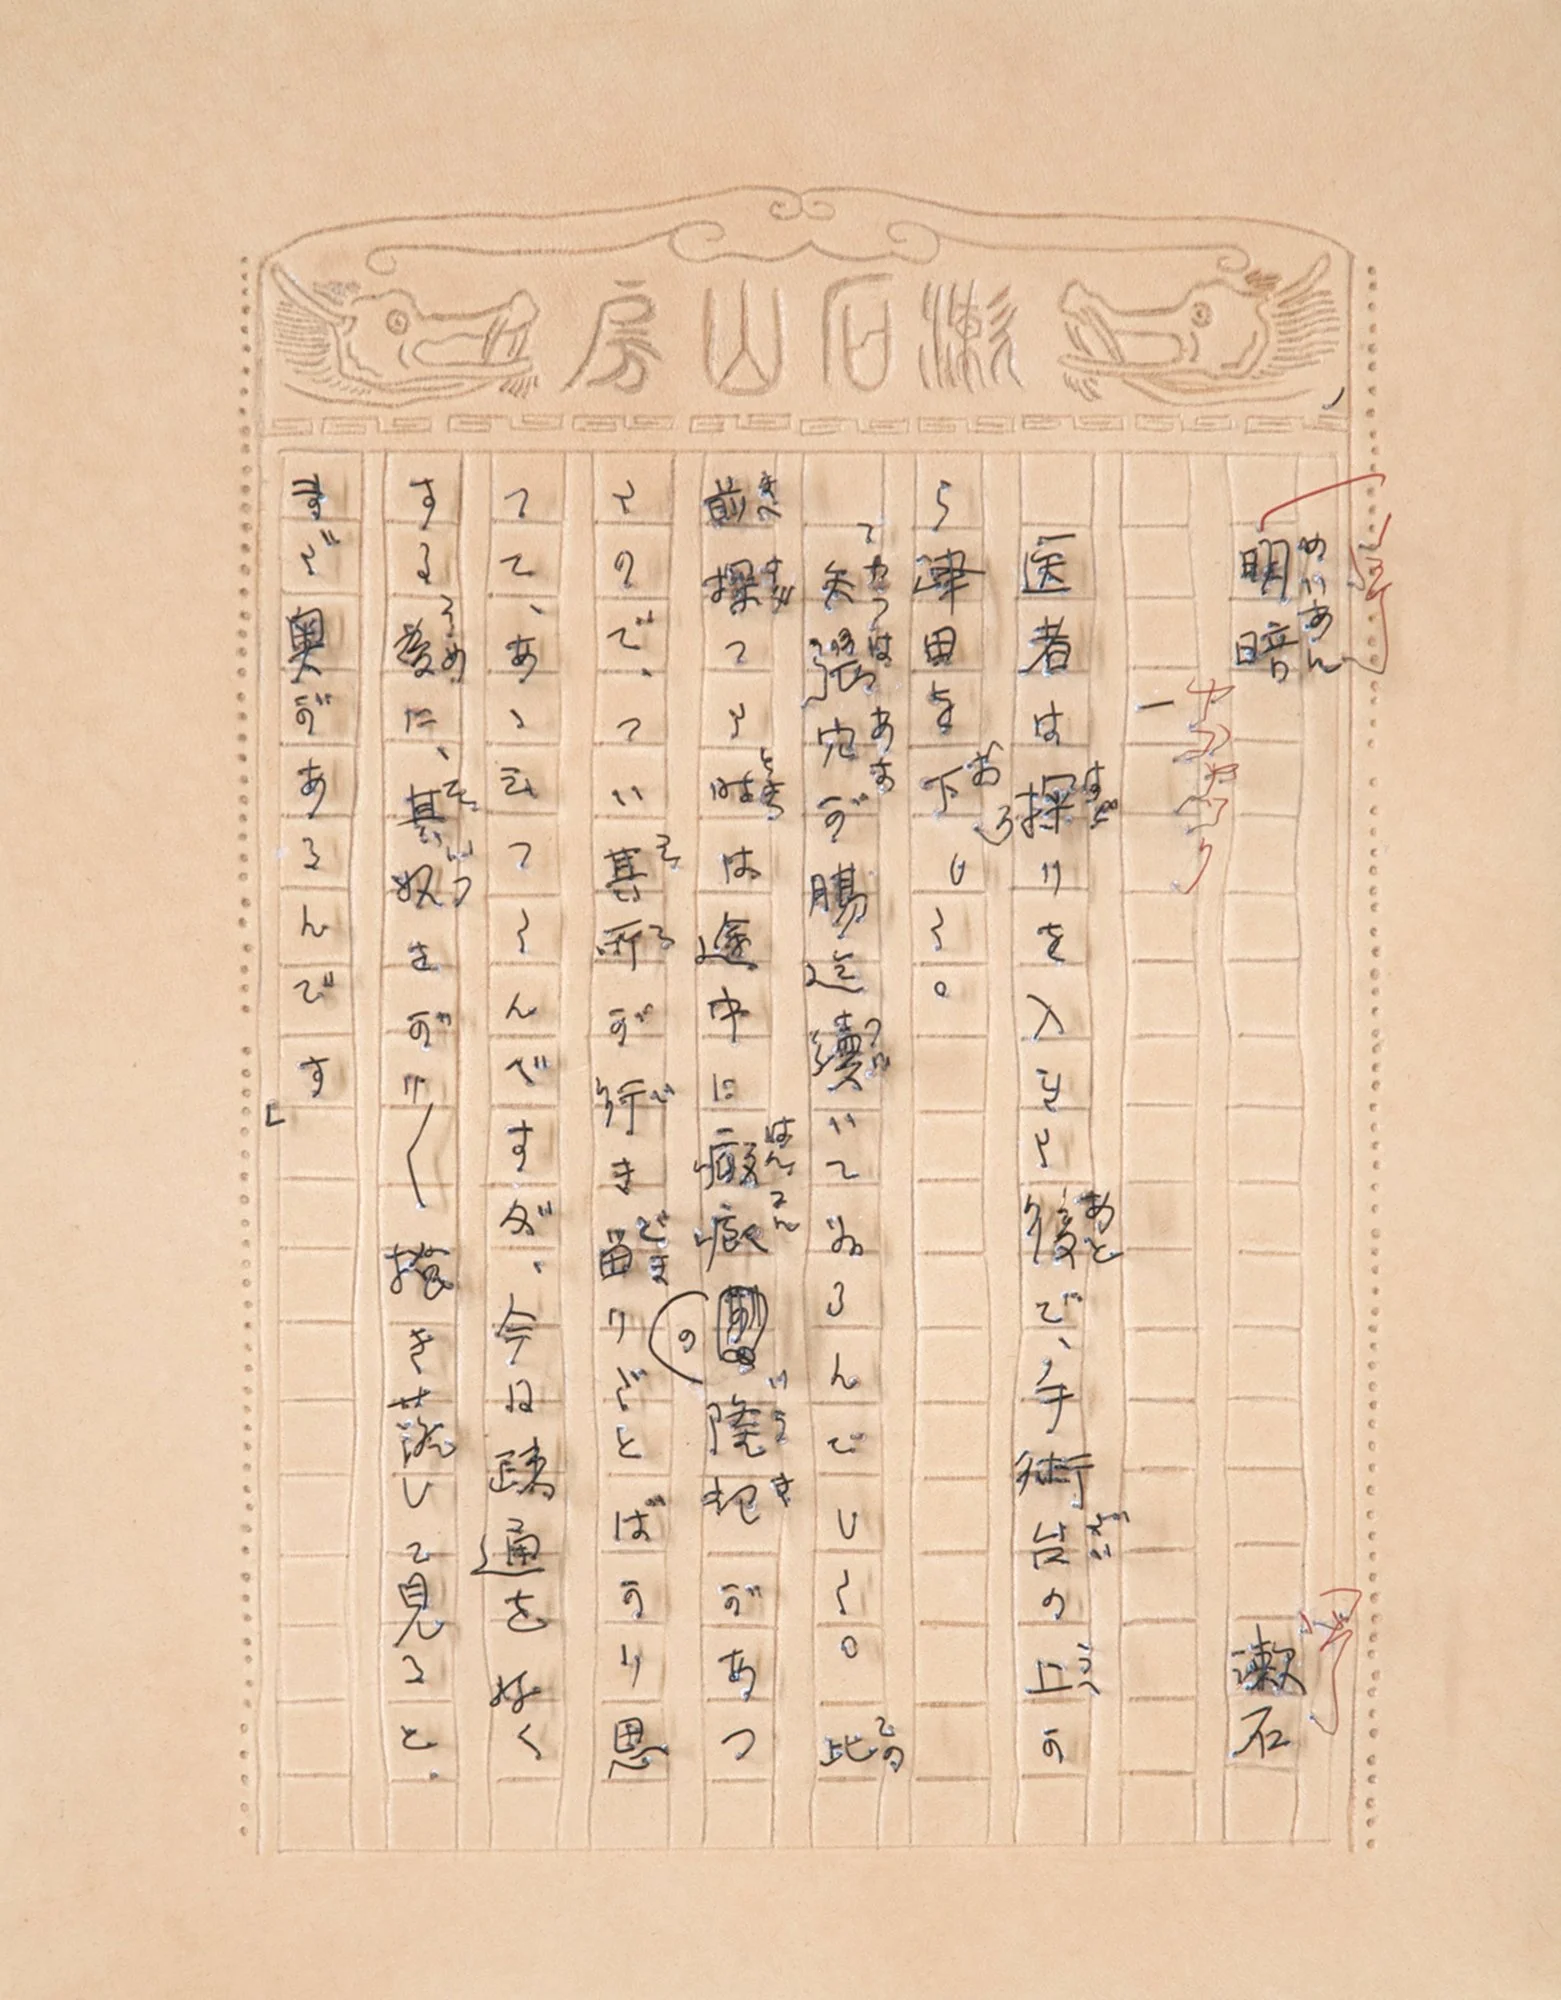 漱石山房
明暗 漱石
めいあん
一
医者は探りを入れた後で、手術台の上か
ら津田を下した。
「矢張穴が腸迄続いてゐるんでした。此
前探つた時は途中に瘢痕の隆起があつ
たので、つい其所が行き留りだとばかり思
つて、あゝ云つたんですが、今日疎通を好く
する為に、其奴をがり〳〵掻き落して見ると、
まだ奥があるんです」